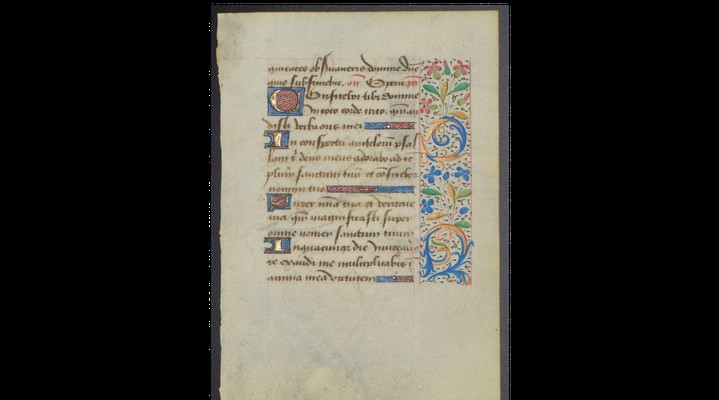 quitates obseruaueris domine dñe
quis sustinebit. añ Opera. ps̃
Confitebor tibi domine
in toto corde meo. qm̃ au
disti verba oris mei
In conspectu angelorum psal
lam t̃ deus meus adorabo ad te
plum sanctum tuũ et confitebor
nomini tuo
Super mĩa tua et veritate
tua qm̃ magnificasti super
omne nomen sanctum tuum
In quacunque die inuocauero
te exaudi me multiplicabis ĩ
anima mea virtutem